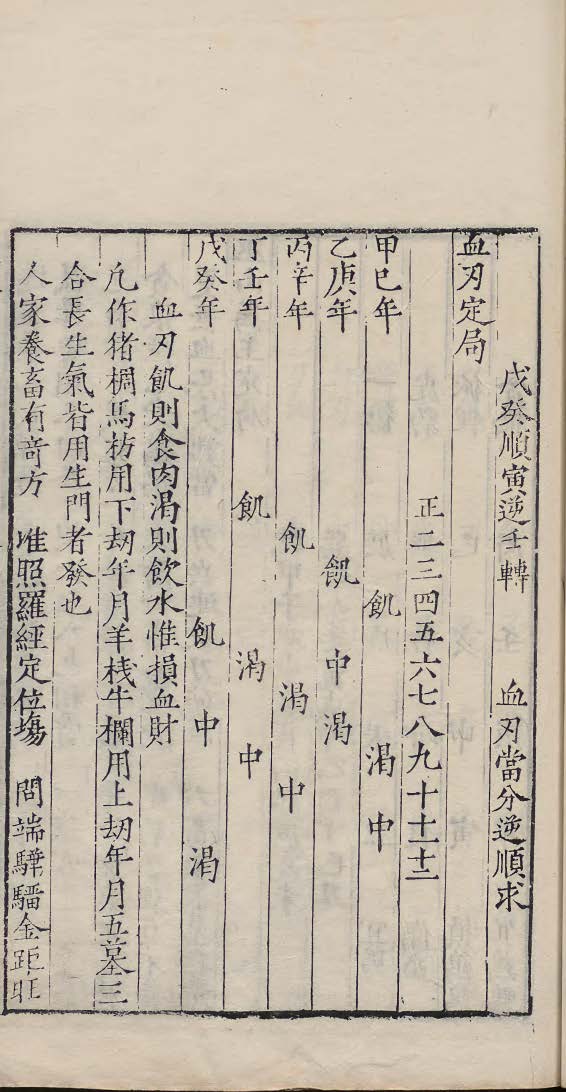 戊癸順寅逆壬轉　血刃當分逆順求
血刃定局
正二三四五六七八九十十一十二
甲巳年　飢　渴　中
乙庚年　飢　中　渴
丙辛年　飢　渴　中
丁壬年　飢　渴　中
戊癸年　飢　中　渴
血刃飢則食肉渴則飲水惟損血財
凢作猪椆馬枋用下刼年月羊栈牛欄用上刼年月五墓三
合長生氣皆用生門者發也
人家養畜有竒方　唯照羅經定位塲　問端驊騮金距旺